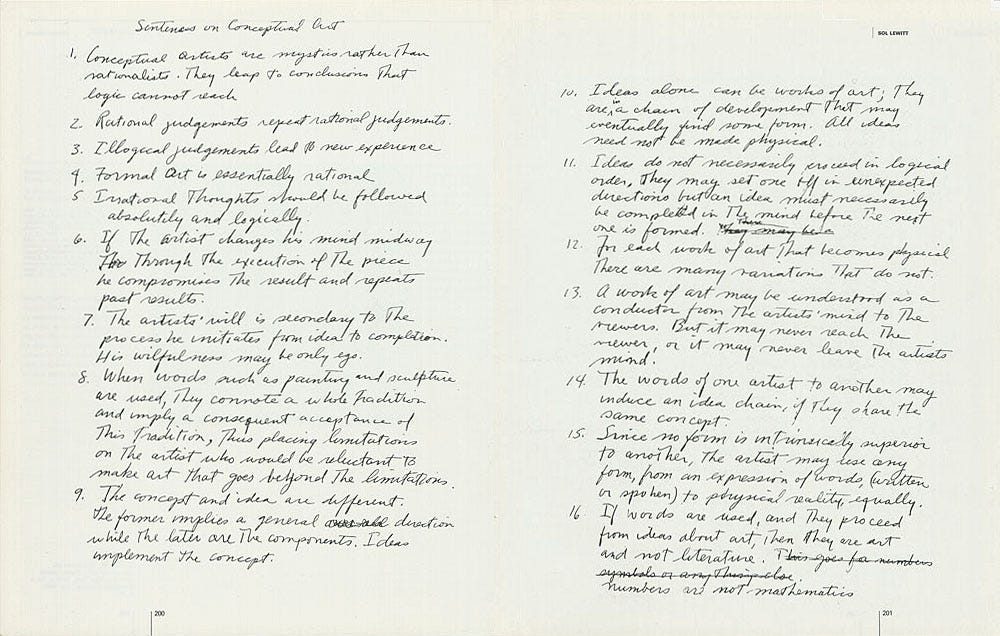 Sentences on Conceptual Art
1. Conceptual Artists are mystics rather than
rationalists. They leap to conclusions that
logic cannot reach
2. Rational judgements repeat rational judgements.
3. Illogical judgements lead to new experience
4. Formal Art is essentially rational
5 Irrational Thoughts should be followed
absolutely and logically.
6. If the artist changes his mind midway
through the execution of the piece
he compromises the result and repeats
past results.
7. The artists' will is secondary to the
process he initiates from idea to completion.
His wilfulness may be only ego.
8. When words such as painting and sculpture
are used, They connote a whole tradition
and imply a consequent acceptance of
This tradition, Thus placing limitations
on the artist who would be reluctant to
make art that goes beyond the limitations.
9. The concept and idea are different.
The former implies a general direction
while the later are the components. Ideas
implement the concept.
200
SOL LEWITT
10. Ideas alone can be works of art; They
are a chain of development that may
eventually find some form. All ideas
need not be made physical.
11. Ideas do not necessarily proceed in logical
order, They may set one off in unexpected
directions but an idea must necessarily
be completed in the mind before the next
one is formed. They may be
There
12. For each work of art that becomes physical
there are many variations that do not.
13. A work of art may be understood as a
conductor from the artists' mind to the
viewers. But it may never reach the
viewer, or it may never leave the artists
mind.
14. The words of one artist to another may
induce an idea chain, if they share the
same concept.
15. Since no form is intrinsically superior
to another, the artist may use any
form, from an expression of words, (written
or spoken) to physical reality, equally.
16 If words are used, and they proceed
from ideas about art, then they are art
and not literature. This goes for numbers
symbols or any things else.
numbers are not mathematics
201